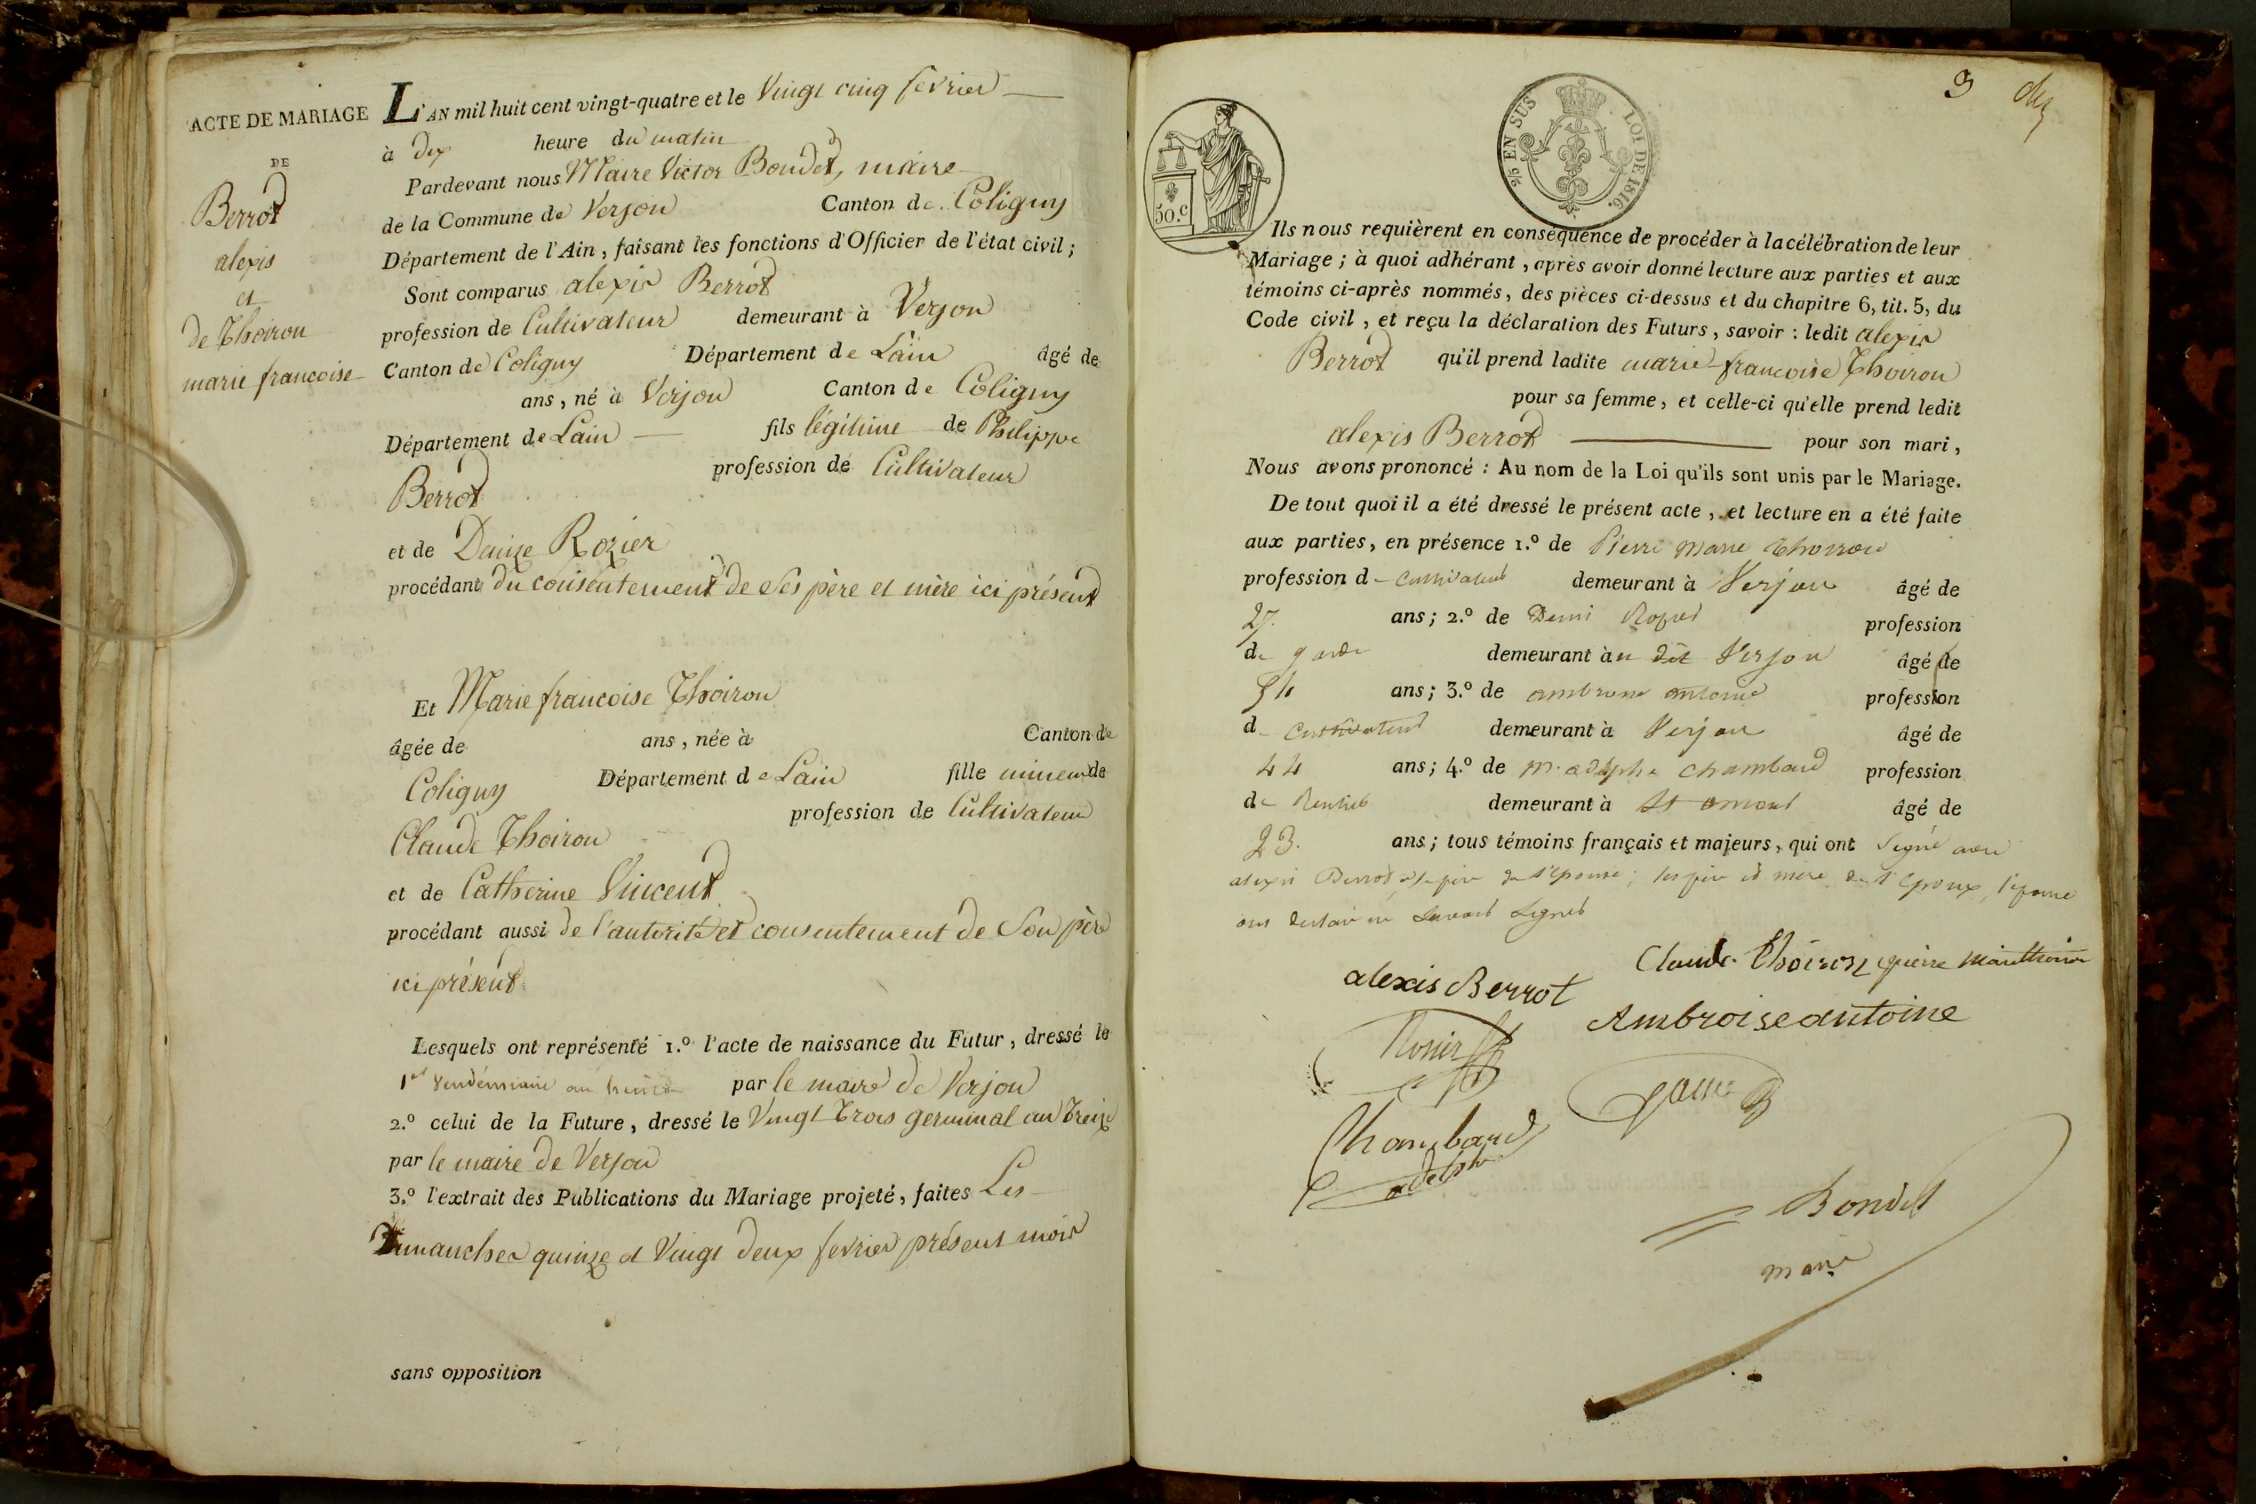 ACTE DE MARIAGE
DE
Berrot
alexis
et
de Thoiron
marie francoise
L'AN mil huit cent vingt-quatre et le Vingt cinq fevrier
à dix heure du matin
Pardevant nous Maire Victor Bondet, maire
de la Commune de Verjon Canton de Coligny
Département de l'Ain, faisant les fonctions d'Officier de l'état civil;
Sont comparus alexis Berrot
profession de Cultivateur demeurant à Verjon
Canton de Coligny Département de Lain âgé de
ans, né à Verjon Canton de Coligny
Département de Lain fils légitime de Philippe
Berrot profession de Cultivateur
et de Rozier
procédant du consentement de Ses père et mère ici présent
Et Marie francoise Thoiron
âgée de ans, née à Canton de
Coligny Département de Lain fille mineure de
Claude Thoiron profession de Cultivateur
et de Catherine Vincent
procédant aussi de l'autorité et consentement de Son père
ici présent
Lesquels ont représenté 1.º l'acte de naissance du Futur, dressé le
1er Vendémiaire an par le maire de Verjon
2.º celui de la Future, dressé le Vingt Trois germinal an Treize
par le maire de Verjon
3.º l'extrait des Publications du Mariage projeté, faites Les
Dimanches quinze et Vingt deux fevrier présent mois
sans opposition
3
50.C
2/5 EN SUS LOI DE 1816.
Ils nous requièrent en conséquence de procéder à la célébration de leur
Mariage; à quoi adhérant, après avoir donné lecture aux parties et aux
témoins ci-après nommés, des pièces ci-dessus et du chapitre 6, tit. 5, du
Code civil, et reçu la déclaration des Futurs, savoir: ledit alexis
Berrot qu'il prend ladite marie francoise Thoiron
pour sa femme, et celle-ci qu'elle prend ledit
alexis Berrot pour son mari,
Nous avons prononcé: Au nom de la Loi qu'ils sont unis par le Mariage.
De tout quoi il a été dressé le présent acte, et lecture en a été faite
aux parties, en présence 1.º de Pierre Marie Thoiron
profession d cultivateur demeurant à Verjon âgé de
27. ans; 2.º de profession
de garde demeurant à Verjon âgé de
54 ans; 3.º de ambroise antoine profession
d cultivateur demeurant à Verjon âgé de
44 ans; 4.º de M. adolphe chambard profession
de Rentier demeurant à St amour âgé de
23. ans; tous témoins français et majeurs, qui ont Signé avec
alexis Berrot le père de l'épouse; les père et mère de l'Epoux, l'epouse
ont
Claude Thoiron pierre mari thoiron
alexis Berrot
Ambroise antoine
Rosier
Chambard
adolphe
Bondet
maire